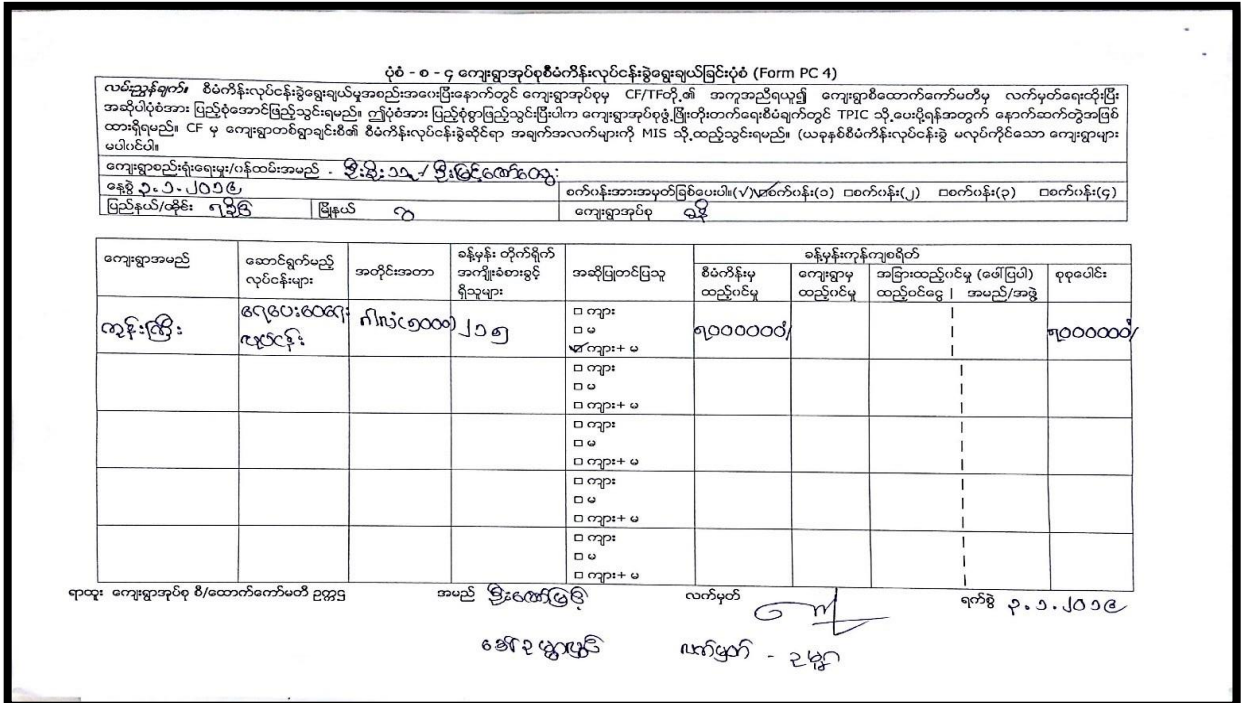 ပုံစံ - စ - ၄ ကျေးရွာအုပ်စုစီမံကိန်းလုပ်ငန်းခွဲရွေးချယ်ခြင်းပုံစံ (Form PC 4)
လမ်းညွှန်ချက်။ စီမံကိန်းလုပ်ငန်းခွဲရွေးချယ်မှုအစည်းအဝေးပြီးနောက်တွင် ကျေးရွာအုပ်စုမှ CF/TFတို့၏ အကူအညီရယူ၍ ကျေးရွာစီထောက်ကော်မတီမှ လက်မှတ်ရေးထိုးပြီး
အဆိုပါပုံစံအား ပြည့်စုံအောင်ဖြည့်သွင်းရမည်။ ဤပုံစံအား ပြည့်စုံစွာဖြည့်သွင်းပြီးပါက ကျေးရွာအုပ်စုဖွံ့ဖြိုးတိုးတက်ရေးစီမံချက်တွင် TPIC သို့ပေးပို့ရန်အတွက် နောက်ဆက်တွဲအဖြစ်
ထားရှိရမည်။ CF မှ ကျေးရွာတစ်ရွာချင်းစီ၏ စီမံကိန်းလုပ်ငန်းခွဲဆိုင်ရာ အချက်အလက်များကို MIS သို့ထည့်သွင်းရမည်။ (ယခုနှစ်စီမံကိန်းလုပ်ငန်းခွဲ မလုပ်ကိုင်သော ကျေးရွာများ
မပါဝင်ပါ။
ကျေးရွာစည်းရုံးရေးမှူး/ဝန်ထမ်းအမည် - ဦးမြင့်ဇော်ထွေး
နေ့စွဲ ၃.၁.၂၀၁၉ စက်ဝန်းအားအမှတ်ခြစ်ပေးပါ။(√) ☑စက်ဝန်း(၁) □စက်ဝန်း(၂) □စက်ဝန်း(၃) □စက်ဝန်း(၄)
ပြည်နယ်/တိုင်း ရခိုင် မြို့နယ် ဂွ ကျေးရွာအုပ်စု ဓနိ
ကျေးရွာအမည် ဆောင်ရွက်မည့် လုပ်ငန်းများ အတိုင်းအတာ ခန့်မှန်း တိုက်ရိုက် အကျိုးခံစားခွင့် ရှိသူများ အဆိုပြုတင်ပြသူ ခန့်မှန်းကုန်ကျစရိတ်
စီမံကိန်းမှ ထည့်ဝင်မှု ကျေးရွာမှ ထည့်ဝင်မှု အခြားထည့်ဝင်မှု (ဖော်ပြပါ) ထည့်ဝင်ငွေ | အမည်/အဖွဲ့ စုစုပေါင်း
ကွန်းကြီး ရေပေးဝေရေး လုပ်ငန်း ဂါလံ(၅၀၀၀) ၂၁၅ □ ကျား
□ မ ၅၀၀၀၀၀၀/ ၅၀၀၀၀၀၀/
☑ ကျား+ မ
□ ကျား
□ မ
□ ကျား+ မ
□ ကျား
□ မ
□ ကျား+ မ
□ ကျား
□ မ
□ ကျား+ မ
□ ကျား
□ မ
□ ကျား+ မ
ရာထူး ကျေးရွာအုပ်စု စီ/ထောက်ကော်မတီ ဥက္ကဌ အမည် လက်မှတ် ရက်စွဲ ၃.၁.၂၀၁၉
လက်မှတ် -